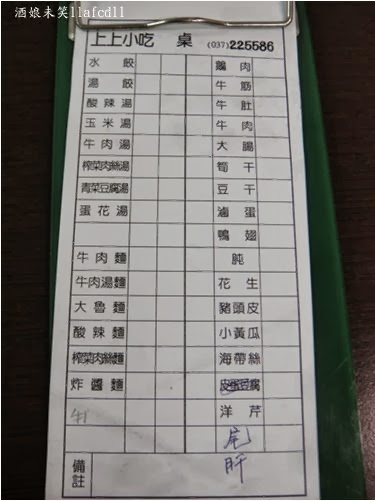 酒娘未笑llafcdll
上上小吃 桌 (037)225586
水餃 鵝肉
湯餃 牛筋
酸辣湯 牛肚
玉米湯 牛肉
牛肉湯 大腸
榨菜肉絲湯 筍干
青菜豆腐湯 豆干
蛋花湯 滷蛋
鴨翅
牛肉麵 肫
牛肉湯麵 花生
大魯麵 豬頭皮
酸辣麵 小黃瓜
榨菜肉絲麵 海帶絲
炸醬麵 皮蛋豆腐
牛 洋芹
備註 肝